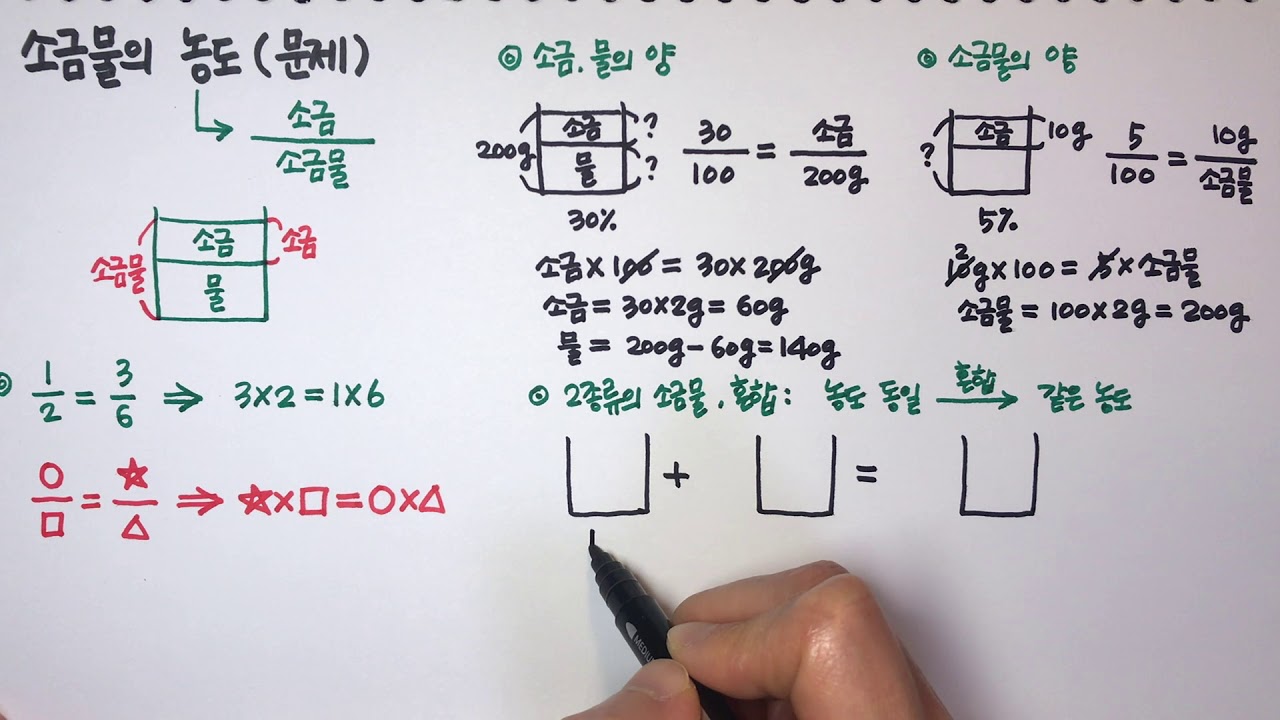 소금물의 농도 (문제)
소금
소금물
소금물
소금
물
소금
1/2 = 3/6 ⇒ 3×2=1×6
○/□ = ☆/△ ⇒ ☆×□=○×△
◎ 소금, 물의 양
200g
소금
물
?
?
30%
30/100 = 소금/200g
소금×100 = 30×200g
소금 = 30×2g = 60g
물 = 200g-60g=140g
◎ 소금물의 양
?
소금
10g
5%
5/100 = 10g/소금물
2
10g×100 = 5×소금물
소금물 = 100×2g=200g
◎ 2종류의 소금물, 혼합: 농도 동일 혼합→ 같은 농도
+ =
MEDIU